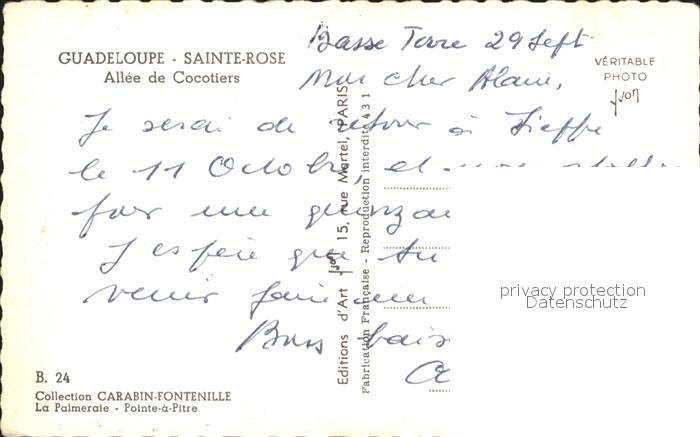 GUADELOUPE - SAINTE-ROSE
Allée de Cocotiers
Basse Terre 29 Sept
VÉRITABLE
PHOTO
Mon cher Alain,
Je serai de retour à
le 11 Octobre, et
pour une
J'espère que tu
venir faire
Bons
B. 24
Collection CARABIN-FONTENILLE
La Palmeraie - Pointe-à-Pitre
Editions d'Art 15, rue Martel, PARIS
Fabrication Française - Reproduction interdite 431
privacy protection
Datenschutz